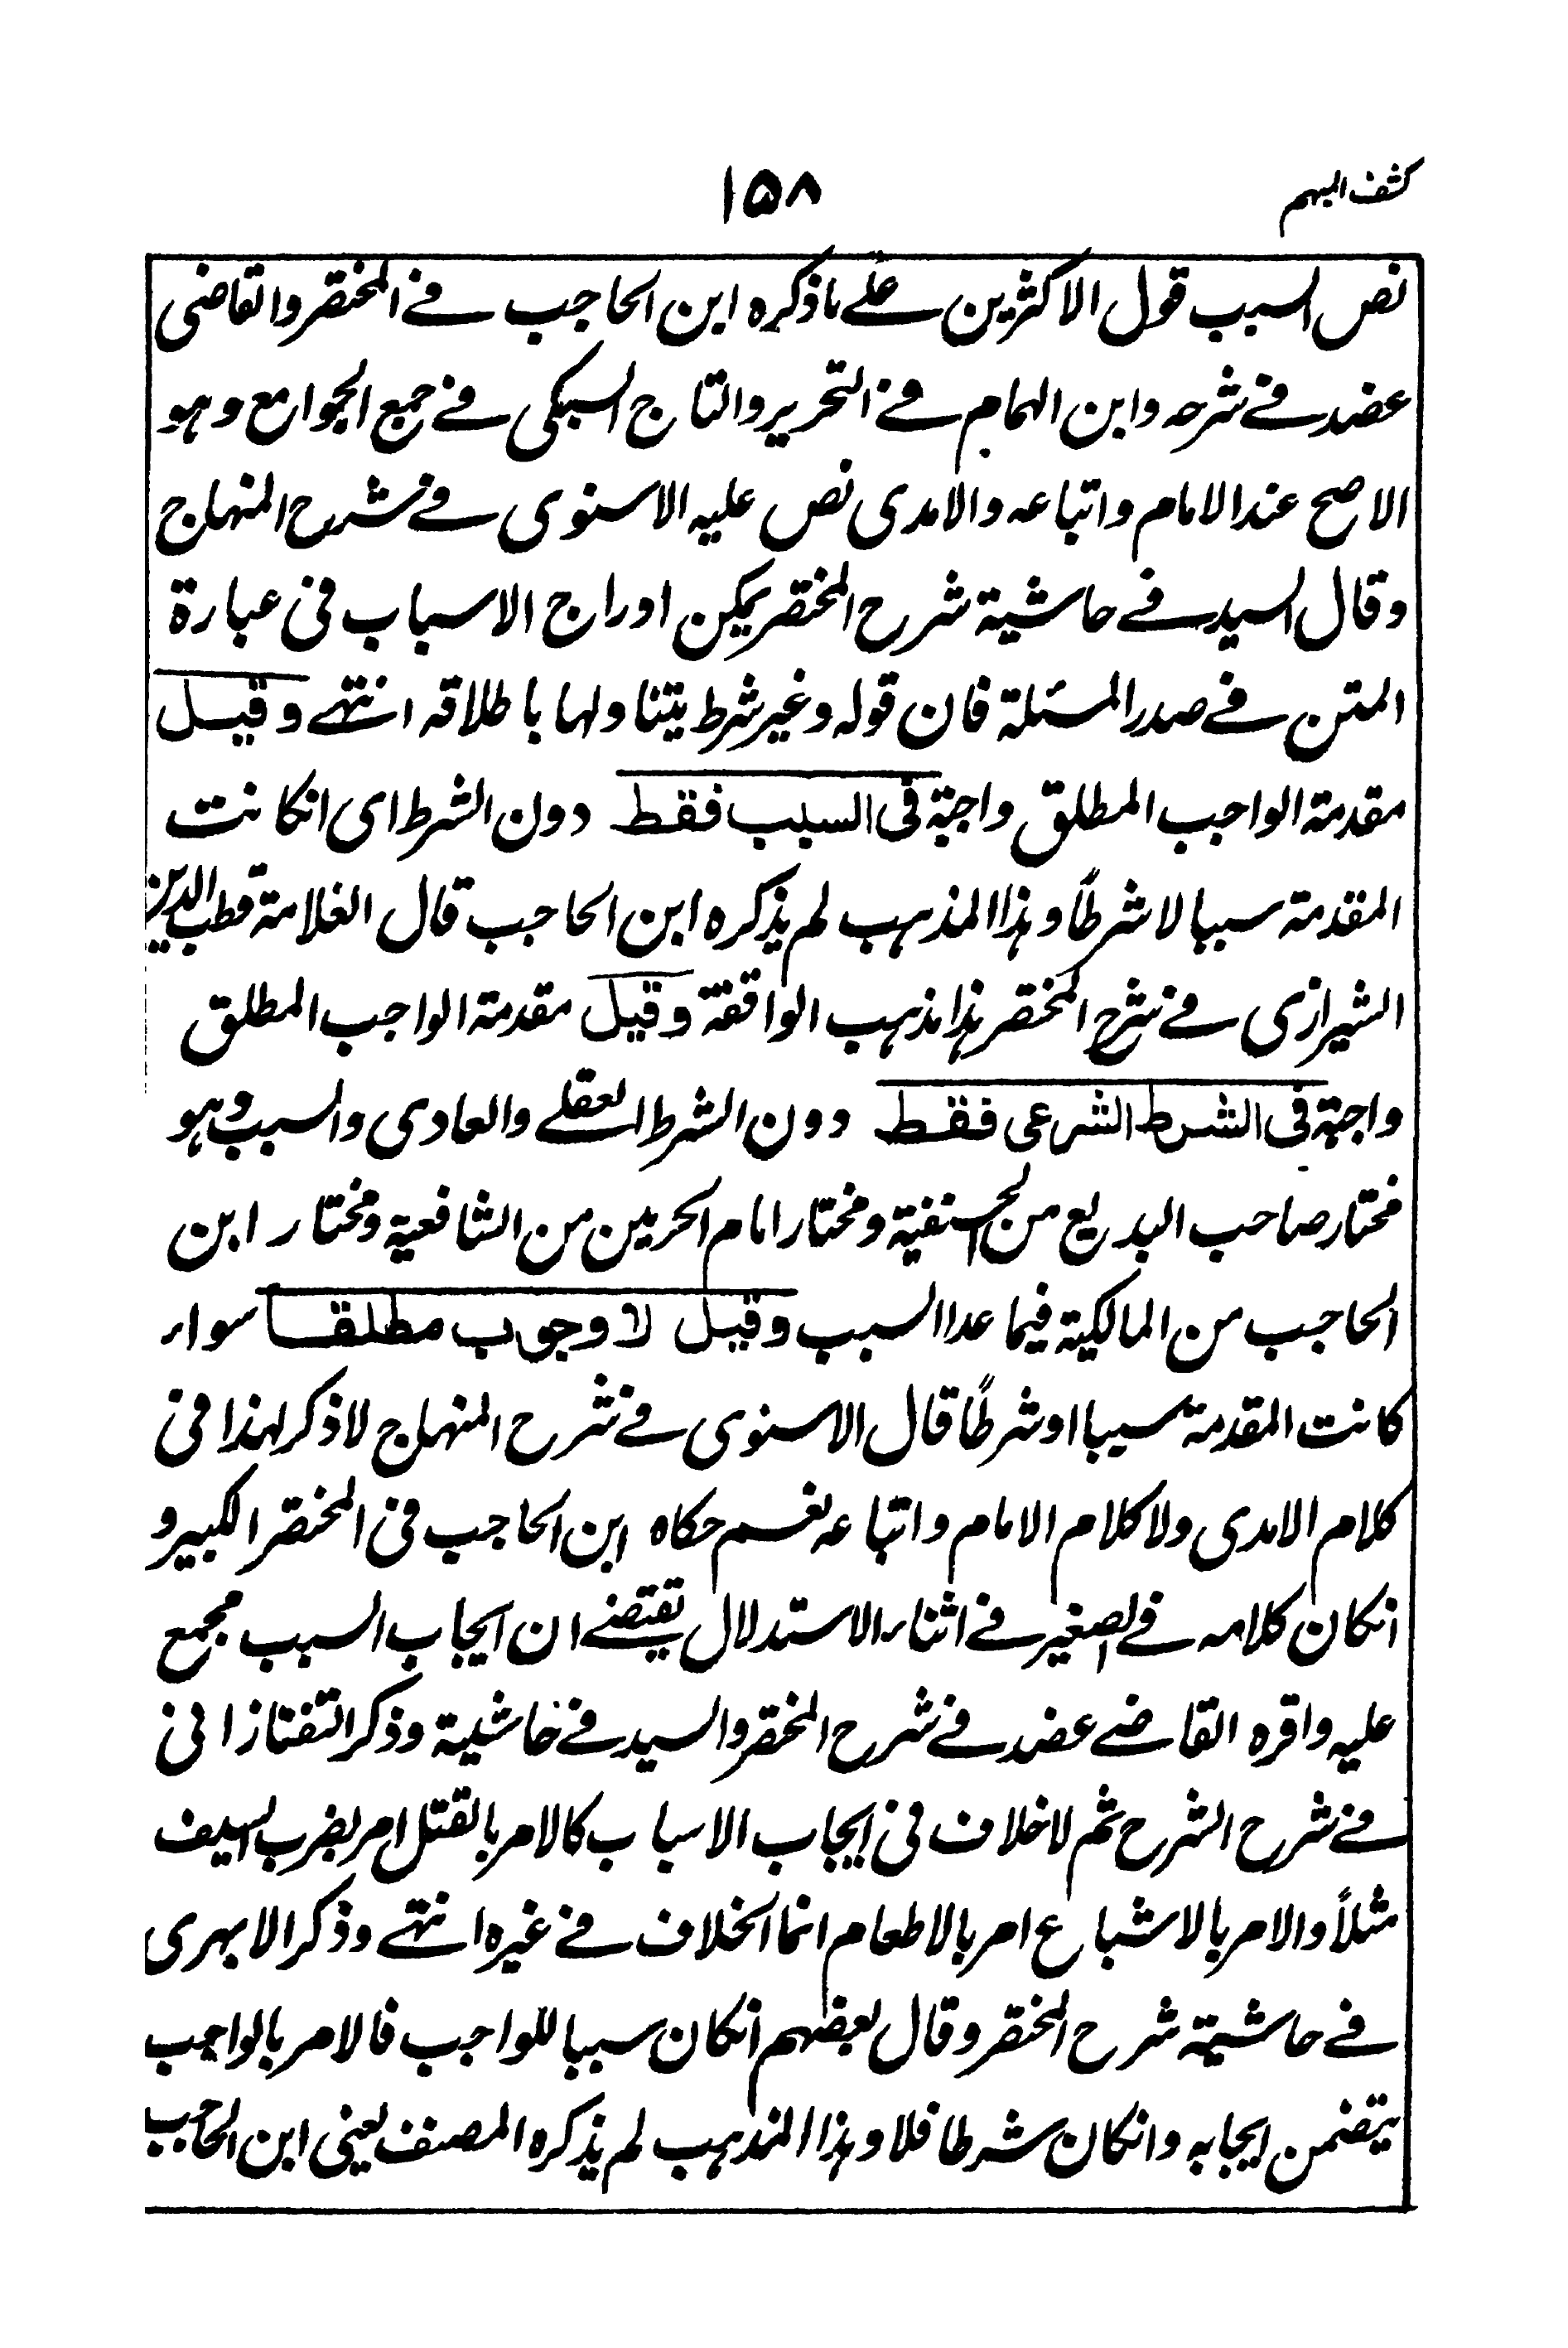 كشف المبهم
١٥٨
نص السبب قول الاكثرين على ماذكره ابن الحاجب فى المختصر والقاضى
عضد فى شرحه وابن الهمام فى التحرير والتاج السبكى فى جمع الجوامع وهو
الاصح عند الامام واتباعه والامدى نص عليه الاسنوى فى شرح المنهاج
وقال السيد فى حاشية شرح المختصر يمكن اوراج الاسباب فى عبارة
المتن فى صدر المسئلة فان قوله وغير شرط يتناولها باطلاقه انتهى وقيل
مقدمة الواجب المطلق واجبة فى السبب فقط دون الشرط اى انكانت
المقدمة سببا لا شرطاً وهذا المذهب لم يذكره ابن الحاجب قال العلامة قطب الدين
الشيرازى فى شرح المختصر هذا مذهب الواقفة وقيل مقدمة الواجب المطلق
واجبة فى الشرط الشرعى فقط دون الشرط العقلى والعادى والسبب وهو
مختار صاحب البديع من الحنفية ومختار امام الحرمين من الشافعية ومختار ابن
الحاجب من المالكية فيما عدا السبب وقيل لا وجوب مطلقا سواء
كانت المقدمة سببا او شرطاً قال الاسنوى فى شرح المنهاج لا ذكر لهذا فى
كلام الامدى ولا كلام الامام واتباعه نعم حكاه ابن الحاجب فى المختصر الكبير و
انكان كلامه فى الصغير فى اثناء الاستدلال يقتضى ان ايجاب السبب مجمع
عليه واقره القاضى عضد فى شرح المختصر والسيد فى حاشية وذكر التفتازانى
فى شرح الشرح ثم لا خلاف فى ايجاب الاسباب كالامر بالقتل امر بضرب السيف
مثلاً والامر بالاشباع امر بالاطعام انما الخلاف فى غيره انتهى وذكر الابهرى
فى حاشية شرح المختصر وقال بعضهم انكان سببا للواجب فالامر بالواجب
يتضمن ايجابه وانكان شرطا فلا وهذا المذهب لم يذكره المصنف يعنى ابن الحاجب